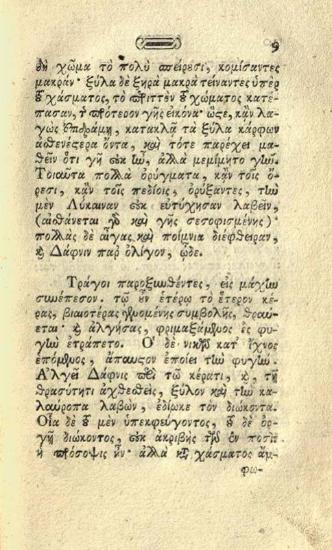 9
δὴ χῶμα τὸ πολὺ σπείρεσι, κομίσαντες
μακράν· ξύλα δὲ ξηρὰ μακρὰ τείναντες ὑπὲρ
τοῦ χάσματος, τὸ περιττὸν τοῦ χώματος κατέ-
πασαν, τὴν πρότερον γῆς εἰκόνα· ὥστε, κἂν λα-
γὼς ἐπιδράμῃ, κατακλᾷ τὰ ξύλα κάρφων
ἀσθενέστερα ὄντα, καὶ τότε παρέχει μα-
θεῖν ὅτι γῆ οὐκ ἦν, ἀλλὰ μεμίμητο γῆν.
Τοιαῦτα πολλὰ ὀρύγματα, κἂν τοῖς ὄ-
ρεσι, κἂν τοῖς πεδίοις, ὀρύξαντες, τὴν
μὲν Λύκαιναν οὐκ εὐτύχησαν λαβεῖν,
(αἰσθάνεται γὰρ καὶ γῆς σεσοφισμένης)·
πολλὰς δὲ αἶγας καὶ ποίμνια διέφθειραν,
καὶ Δάφνιν παρ᾽ ὀλίγον, ὧδε.
Τράγοι παροξυνθέντες, εἰς μάχην
συνέπεσον. τῷ οὖν ἑτέρῳ τὸ ἕτερον κέ-
ρας, βιαιοτέρας γενομένης συμβολῆς, θραύ-
εται· καὶ ἀλγήσας, φριμαξάμενος ἐς φυ-
γὴν ἐτράπετο. Ὁ δὲ νικῶν κατ᾽ ἴχνος
ἑπόμενος, ἄπαυστον ἐποίει τὴν φυγήν.
Ἀλγεῖ Δάφνις περὶ τῷ κέρατι, καὶ, τῇ
θρασύτητι ἀχθεσθεὶς, ξύλον καὶ τὴν κα-
λαύροπα λαβὼν, ἐδίωκε τὸν διώκοντα.
Οἷα δὲ τοῦ μὲν ὑπεκφεύγοντος, τοῦ δὲ ὀρ-
γῇ διώκοντος, οὐκ ἀκριβὴς τῶν ἐν ποσὶν
ἡ πρόσοψις ἦν· ἀλλὰ κατὰ χάσματος ἄμ-
φω-